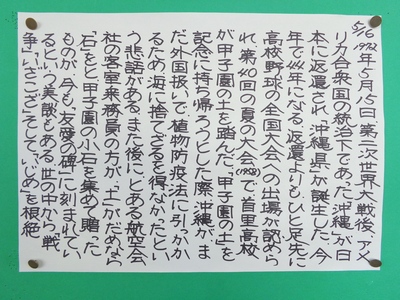 5/6 1972年5月15日第二次世界大戦後、アメ
リカ合衆国の統治下であった「沖縄」が日
本に返還され「沖縄県」が誕生した。今
年で44年になる。返還よりもひと足先に
高校野球の全国大会への出場が認めら
れ、第40回の夏の大会(1958)で首里高校
が甲子園の土を踏んだ。「甲子園の土」を
記念に持ち帰ろうとした際、沖縄がま
だ外国扱いで植物防疫法に引っかか
るため海に捨てざるを得なかったとい
う悲話がある。また後に、とある航空会
社の客室乗務員の方が、「土」がだめなら
「石」をと甲子園の小石を集めて贈った
ものが、今も「友愛の碑」に刻まれてい
るという美談もある。世の中から、「戦
争」、「いざこざ」そして、「いじめ」を根絶